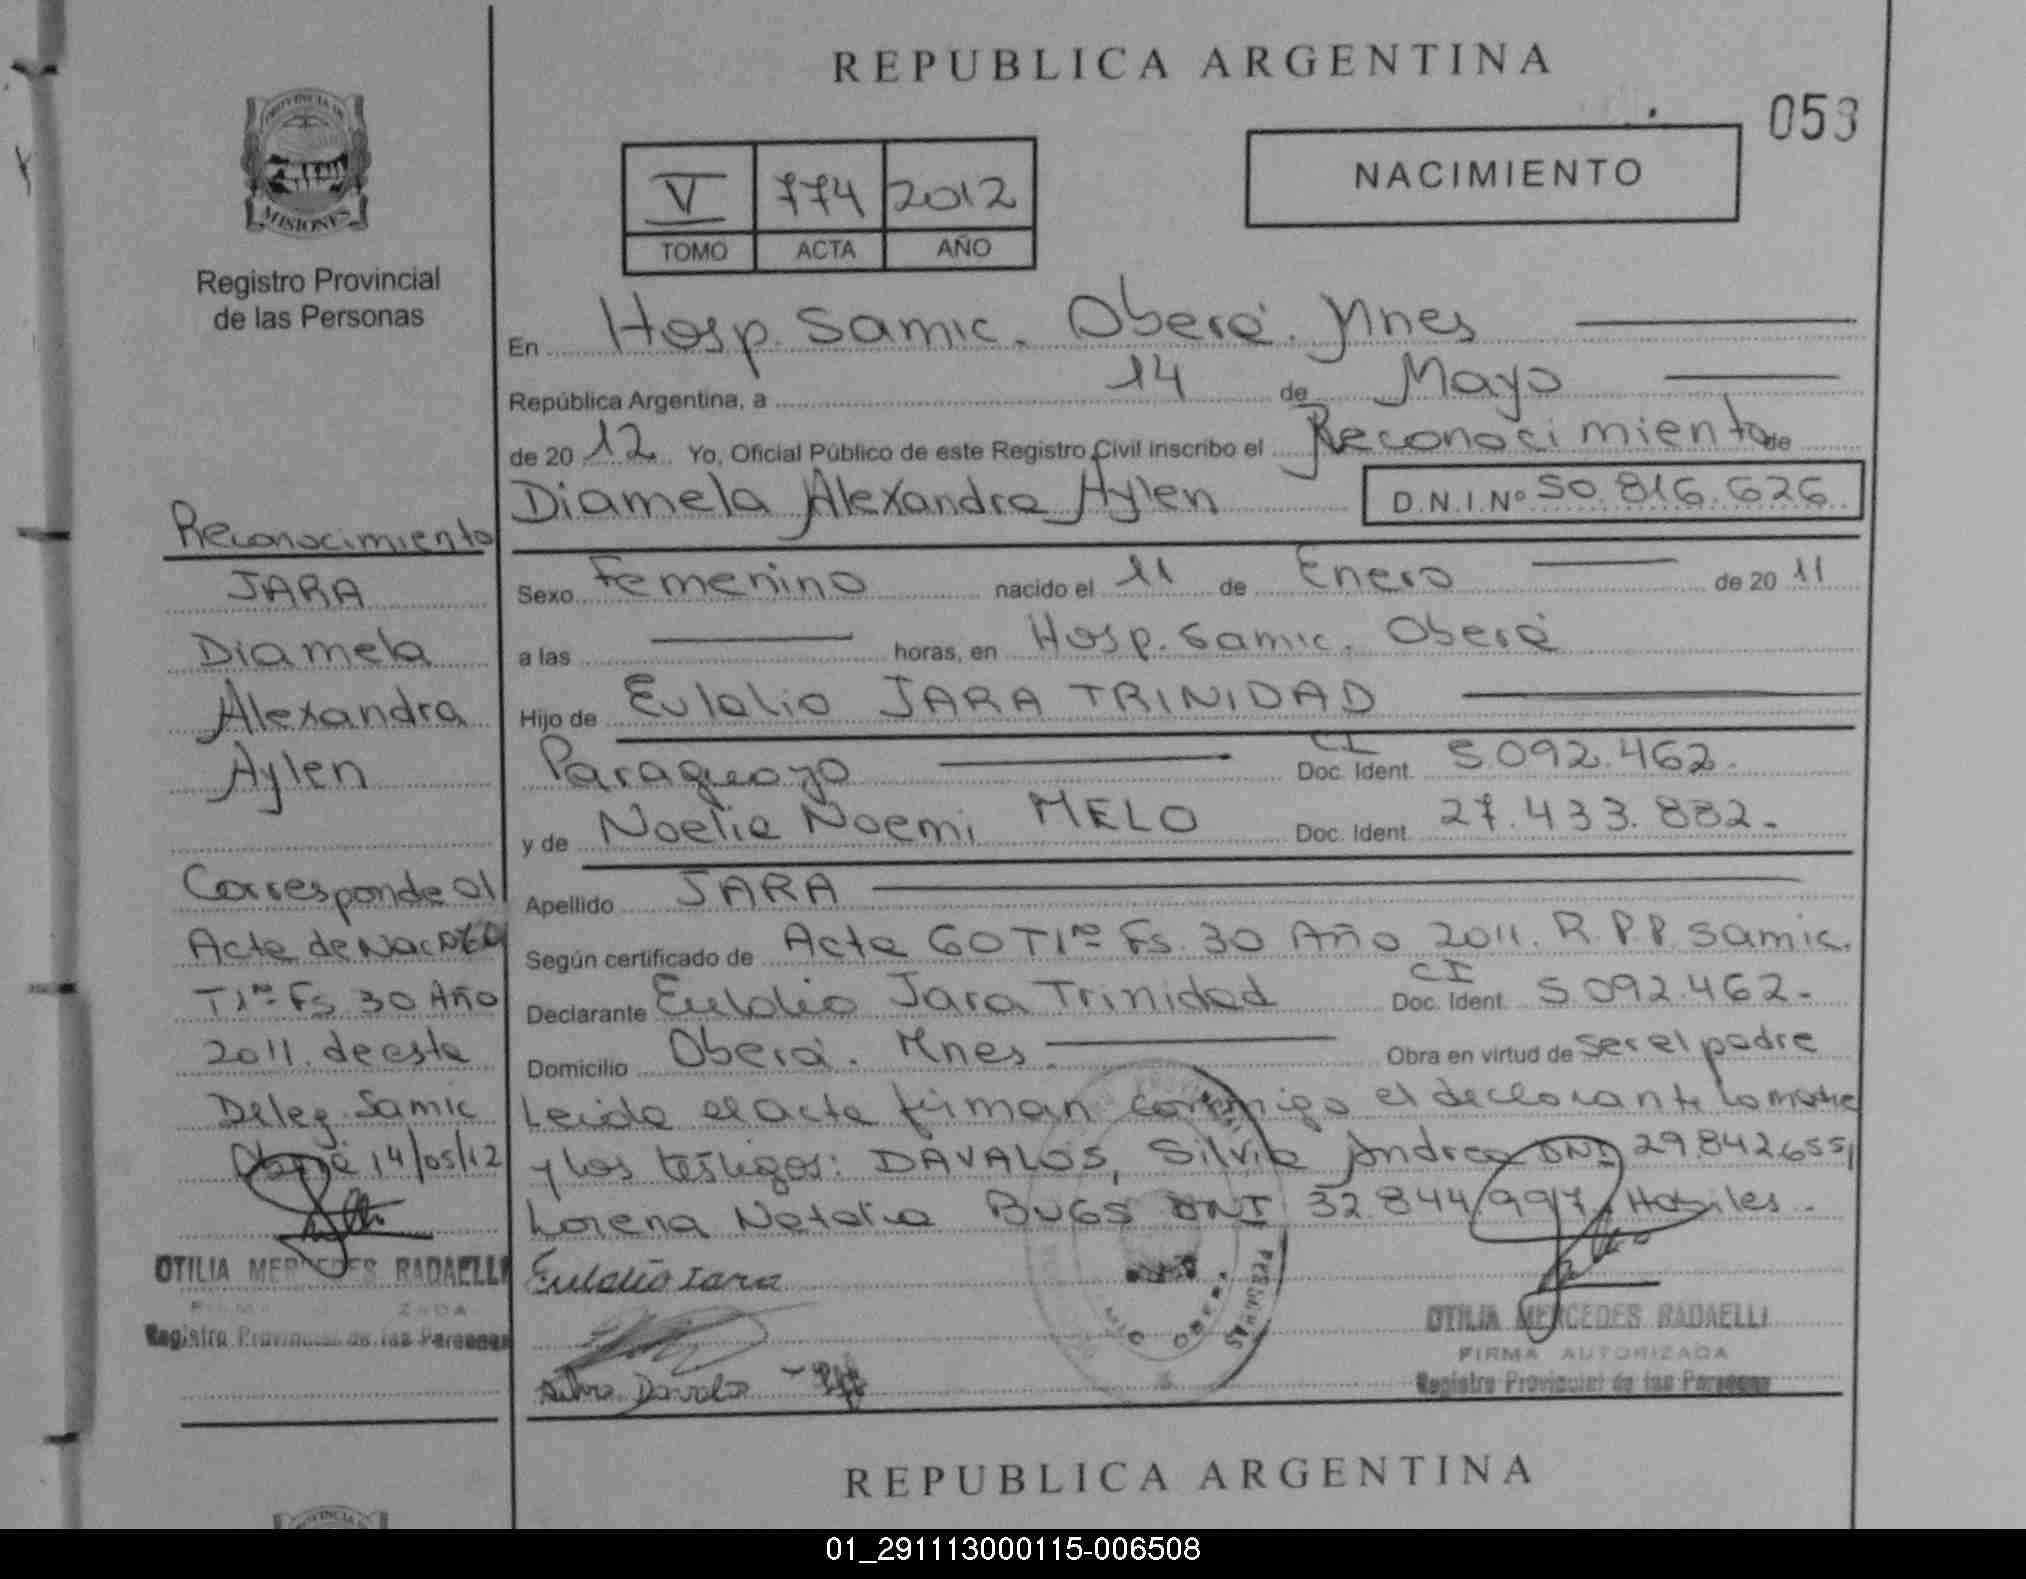 REPUBLICA ARGENTINA
053
PROVINCIA DE
MISIONES
Registro Provincial
de las Personas
V 774 2012
TOMO ACTA AÑO
NACIMIENTO
En Hosp. Samic. Oberá. Mnes
República Argentina, a 14 de Mayo
de 20 12 Yo, Oficial Público de este Registro Civil inscribo el Reconocimiento de
Diamela Alexandra Aylen D.N.I.Nº 50.816.626
Sexo Femenino nacido el 11 de Enero de 20 11
a las horas, en Hosp. Samic. Oberá
Hijo de Eulalio JARA TRINIDAD
Paraguayo CI Doc. Ident. 5.092.462.
y de Noelia Noemi MELO Doc. Ident. 27.433.882.
Apellido JARA
Según certificado de Acta 60 T1ro Fs. 30 Año 2011. R.P.P. Samic.
Declarante Eulalio Jara Trinidad CI Doc. Ident. 5.092.462.
Domicilio Oberá. Mnes Obra en virtud de ser el padre
Leida el acta firman conmigo el declarante la madre
y los testigos: DAVALOS, Silvia Andrea DNI 29.842.655,
Lorena Natalia BUGS DNI 32.844.997. Habiles.
Eulalio Jara
Davalos
OTILIA MERCEDES RADAELLI
FIRMA AUTORIZADA
Registro Provincial de las Personas
Reconocimiento
JARA
Diamela
Alexandra
Aylen
Corresponde al
Acta de Nac Nº 60
T1ro Fs 30 Año
2011. de esta
Deleg. Samic
Oberá 14/05/12
OTILIA MERCEDES RADAELLI
Registro Provincial de las Personas
REPUBLICA ARGENTINA
01_291113000115-006508